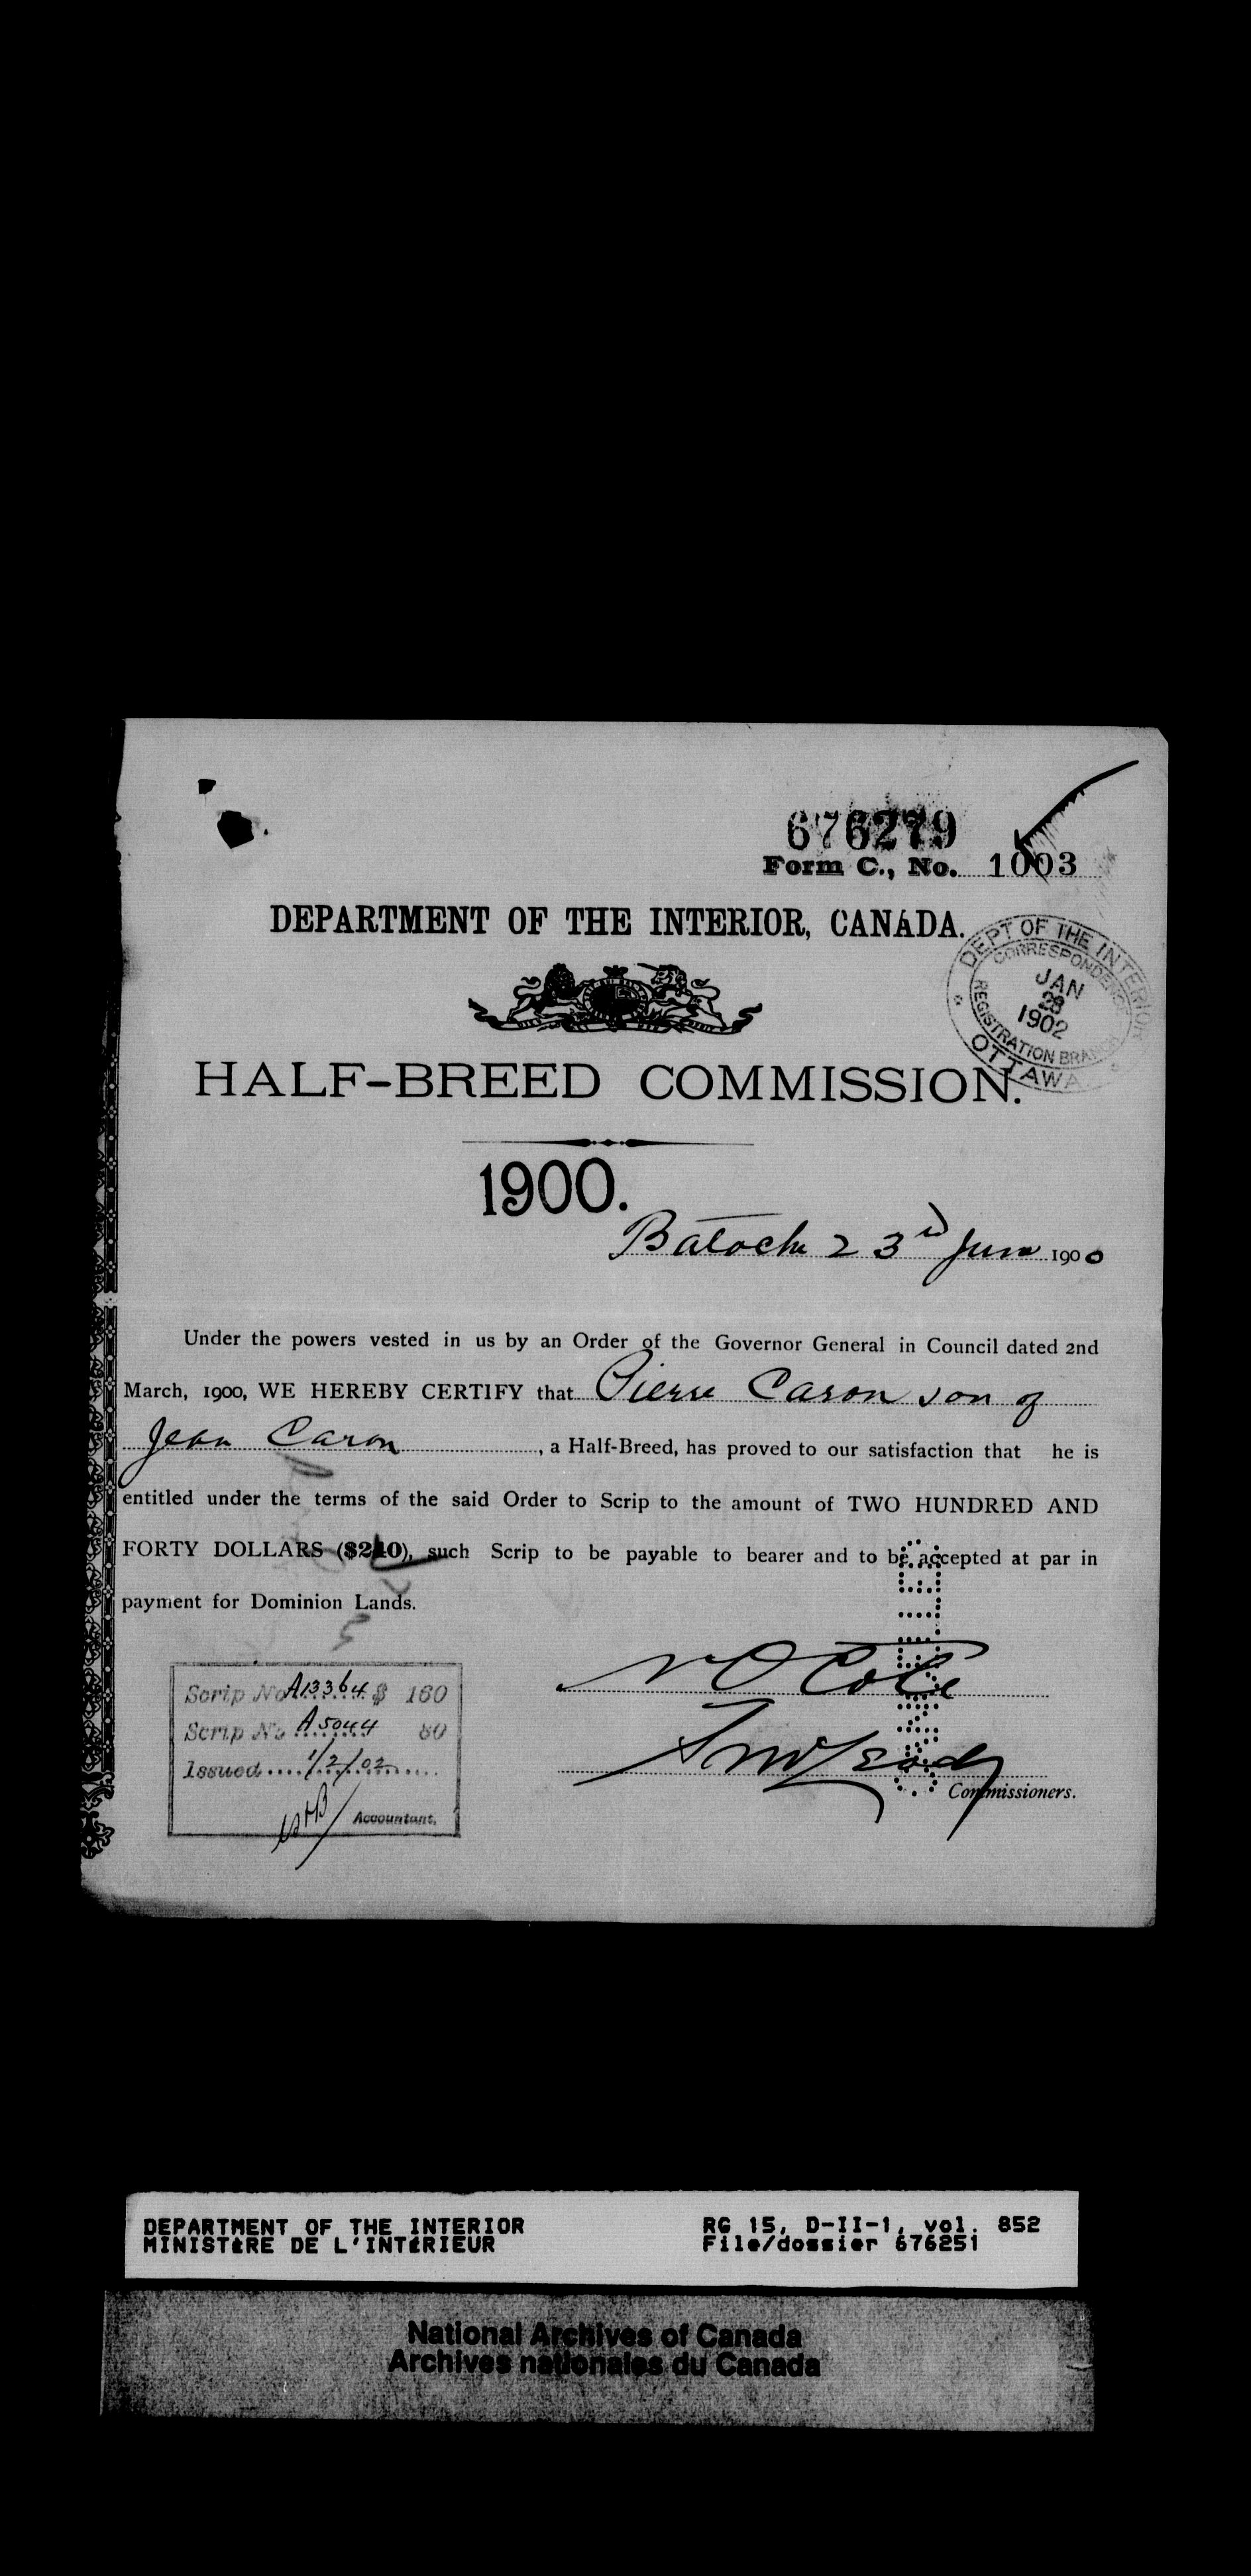 676279
Form C., No. 1003
DEPARTMENT OF THE INTERIOR, CANADA.
DEPT OF THE INTERIOR
CORRESPONDENCE
JAN
1902
REGISTRATION BRANCH
OTTAWA
HALF-BREED COMMISSION.
1900.
Batoche 23rd June 1900
Under the powers vested in us by an Order of the Governor General in Council dated 2nd
March, 1900, WE HEREBY CERTIFY that Pierre Caron son of
Jean Caron, a Half-Breed, has proved to our satisfaction that he is
entitled under the terms of the said Order to Scrip to the amount of TWO HUNDRED AND
FORTY DOLLARS ($240), such Scrip to be payable to bearer and to be accepted at par in
payment for Dominion Lands.
Scrip No A13364 $ 160
Scrip No A5044 80
Issued 1/2/02
Accountant.
N O Coté
Commissioners.
DEPARTMENT OF THE INTERIOR RG 15, D-II-1, vol. 852
MINISTÈRE DE L'INTÉRIEUR File/dossier 676251
National Archives of Canada
Archives nationales du Canada